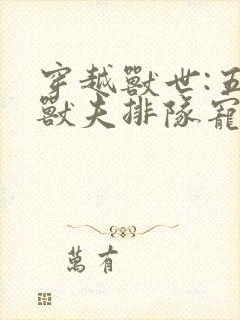 穿越獸世:五
獸夫排隊寵
萬有